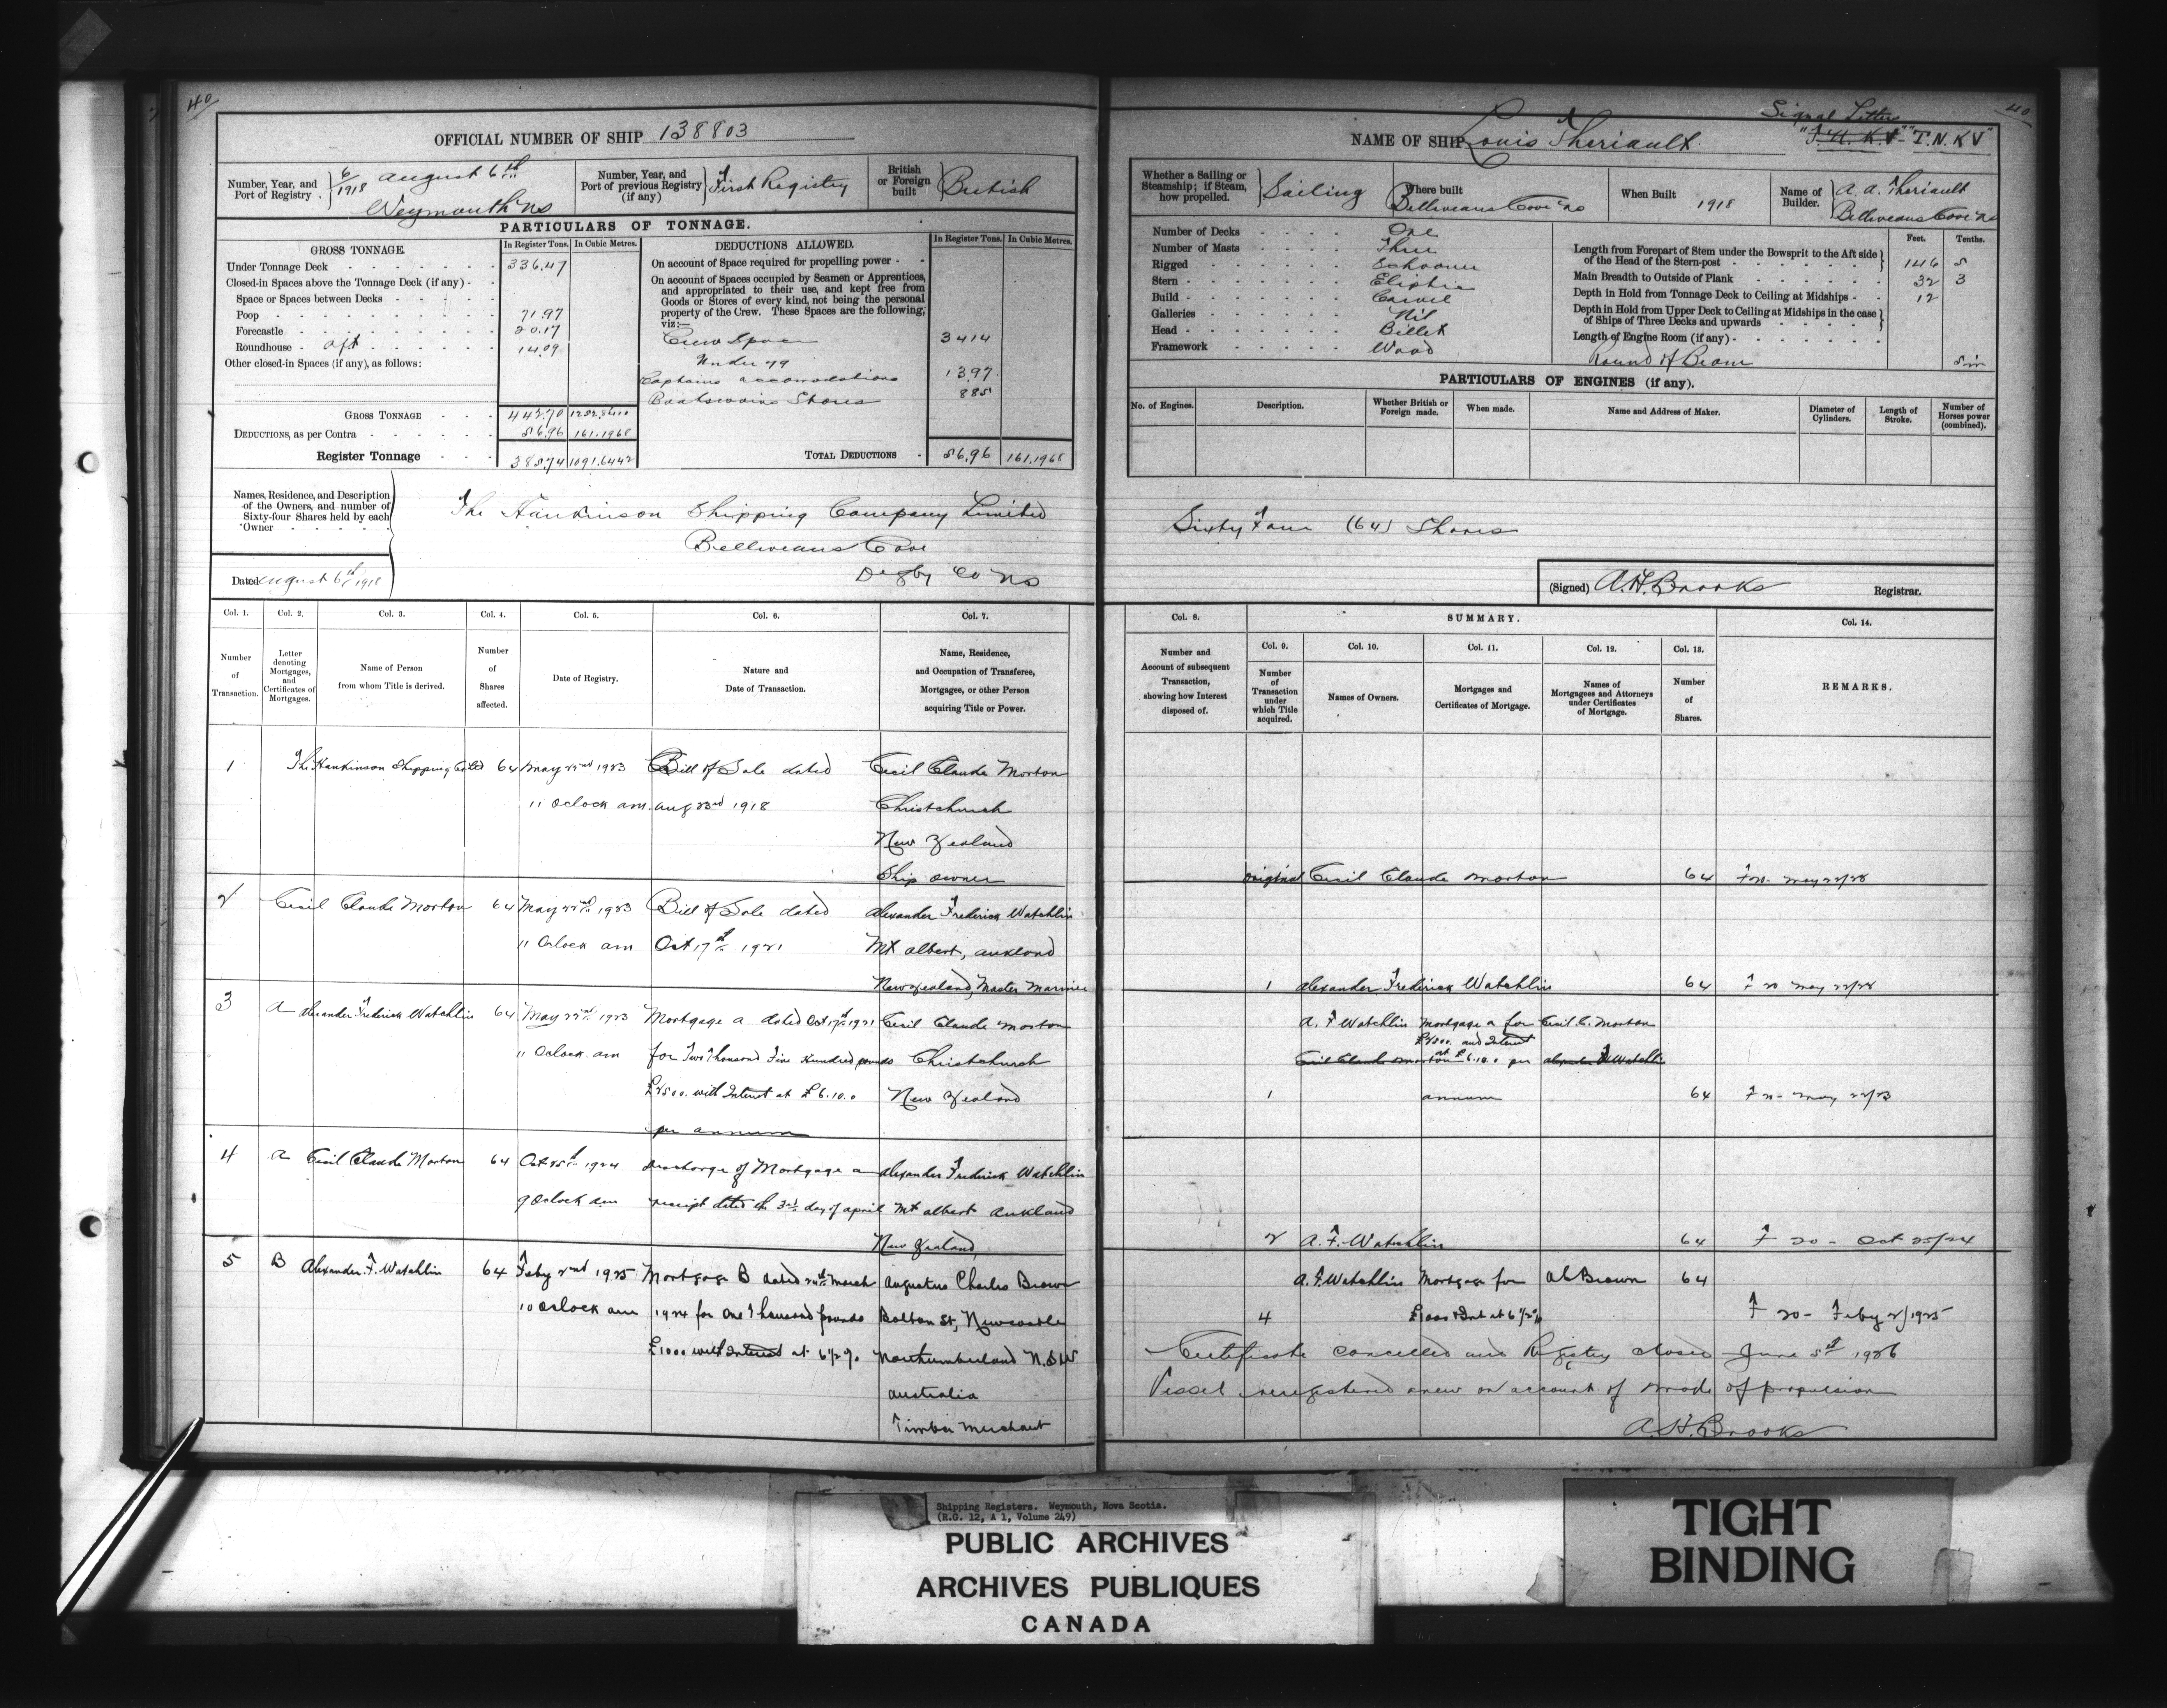 40
OFFICIAL NUMBER OF SHIP 138803
Number, Year, and Port of Registry 6/1918 August 6th Weymouth NS
Number, Year, and Port of previous Registry (if any) First Registry
British or Foreign built British
PARTICULARS OF TONNAGE.
GROSS TONNAGE. In Register Tons. In Cubic Metres.
Under Tonnage Deck 336.47
Closed-in Spaces above the Tonnage Deck (if any)
Space or Spaces between Decks
Poop 71.97
Forecastle 20.17
Roundhouse aft 14.09
Other closed-in Spaces (if any), as follows:
GROSS TONNAGE 442.70
DEDUCTIONS, as per Contra 56.96 161.1968
Register Tonnage 385.74 1091.6442
DEDUCTIONS ALLOWED. In Register Tons. In Cubic Metres.
On account of Space required for propelling power
On account of Spaces occupied by Seamen or Apprentices, and appropriated to their use, and kept free from Goods or Stores of every kind, not being the personal property of the Crew. These Spaces are the following, viz:—
Crew Space 34 14
Under 79
Captains accomodations 13.97
Boatswains Stores 885
TOTAL DEDUCTIONS 56.96 161.1968
Names, Residence, and Description of the Owners, and number of Sixty-four Shares held by each Owner
The Hankinson Shipping Company Limited
Belliveaus Cove
Digby Co NS
Dated August 6th 1918
Col. 1. Col. 2. Col. 3. Col. 4. Col. 5. Col. 6. Col. 7.
Number of Transaction.
Letter denoting Mortgages, and Certificates of Mortgages.
Name of Person from whom Title is derived.
Number of Shares affected.
Date of Registry.
Nature and Date of Transaction.
Name, Residence, and Occupation of Transferee, Mortgages, or other Person acquiring Title or Power.
1 The Hankinson Shipping Co Ltd 64 May 22nd 1923 Bill of Sale dated Cecil Claude Morton
11 Oclock am. Aug 23rd 1918 Christchurch
New Zealand
Ship owner
2 Cecil Claude Morton 64 May 22nd 1923 Bill of Sale dated Alexander Frederick Watchlin
11 Oclock am Oct 17th 1921 Mt Albert, Aukland
New Zealand, Master Mariner
3 A Alexander Frederick Watchlin 64 May 22nd 1923 Mortgage A dated Oct 17th 1921 Cecil Claude Morton
11 Oclock am for Two Thousand Five Hundred pounds Christchurch
£2500. with Interest at £6.10.0 New Zealand
per annum
4 A Cecil Claude Morton 64 Oct 25th 1924 Discharge of Mortgage A Alexander Frederick Watchlin
9 Oclock am receipt dated the 3rd day of April Mt Albert Aukland
New Zealand,
5 B Alexander F. Watchlin 64 Feby 2nd 1925 Mortgage B dated 24th March Augustus Charles Brown
10 Oclock am 1924 for One Thousand pounds Bolton St, Newcastle
£1000 with Interest at 6½% Northumberland N.S.W
Australia
Timber Merchant
40
NAME OF SHIP Louis Theriault
Signal Letters
T.N.K.V
Whether a Sailing or Steamship; if Steam, how propelled. Sailing
Where built Belliveaus Cove NS
When Built 1918
Name of Builder. A. A. Theriault Belliveaus Cove NS
Number of Decks One
Number of Masts Three
Rigged Schooner
Stern Eliptic
Build Carvel
Galleries Nil
Head Billet
Framework Wood
Feet. Tenths.
Length from Forepart of Stem under the Bowsprit to the Aft side of the Head of the Stern-post 146 5
Main Breadth to Outside of Plank 32 3
Depth in Hold from Tonnage Deck to Ceiling at Midships 12
Depth in Hold from Upper Deck to Ceiling at Midships in the case of Ships of Three Decks and upwards
Length of Engine Room (if any)
Round of Beam 5in
PARTICULARS OF ENGINES (if any).
No. of Engines. Description. Whether British or Foreign made. When made. Name and Address of Maker. Diameter of Cylinders. Length of Stroke. Number of Horses power (combined).
Sixty Four (64) Shares
(Signed) A.H. Brooks Registrar.
Col. 8. SUMMARY. Col. 14.
Col. 9. Col. 10. Col. 11. Col. 12. Col. 13.
Number and Account of subsequent Transaction, showing how Interest disposed of.
Number of Transaction under which Title acquired.
Names of Owners.
Mortgages and Certificates of Mortgage.
Names of Mortgagees and Attorneys under Certificates of Mortgage.
Number of Shares.
REMARKS.
Original Cecil Claude Morton 64
1 Alexander Frederick Watchlin 64
A. F Watchlin Mortgage A for Cecil C. Morton
£2500. and Interest
Cecil Claude Morton at £6.10.0 per Alexander F Watchlin
1 annum 64 F 20 - May 22/23
2 A. F. Watchlin 64 F 20 - Oct 25/24
A. F. Watchlin Mortgage for A C Brown 64
4 £1000 & Int at 6½% F 20 - Feby 2/1925
Certificate cancelled and Registry closed June 5th 1926
Vessel reregistered anew on account of mode of propulsion
A.H. Brooks
Shipping Registers. Weymouth, Nova Scotia.
(R.G. 12, A 1, Volume 249)
PUBLIC ARCHIVES
ARCHIVES PUBLIQUES
CANADA
TIGHT
BINDING